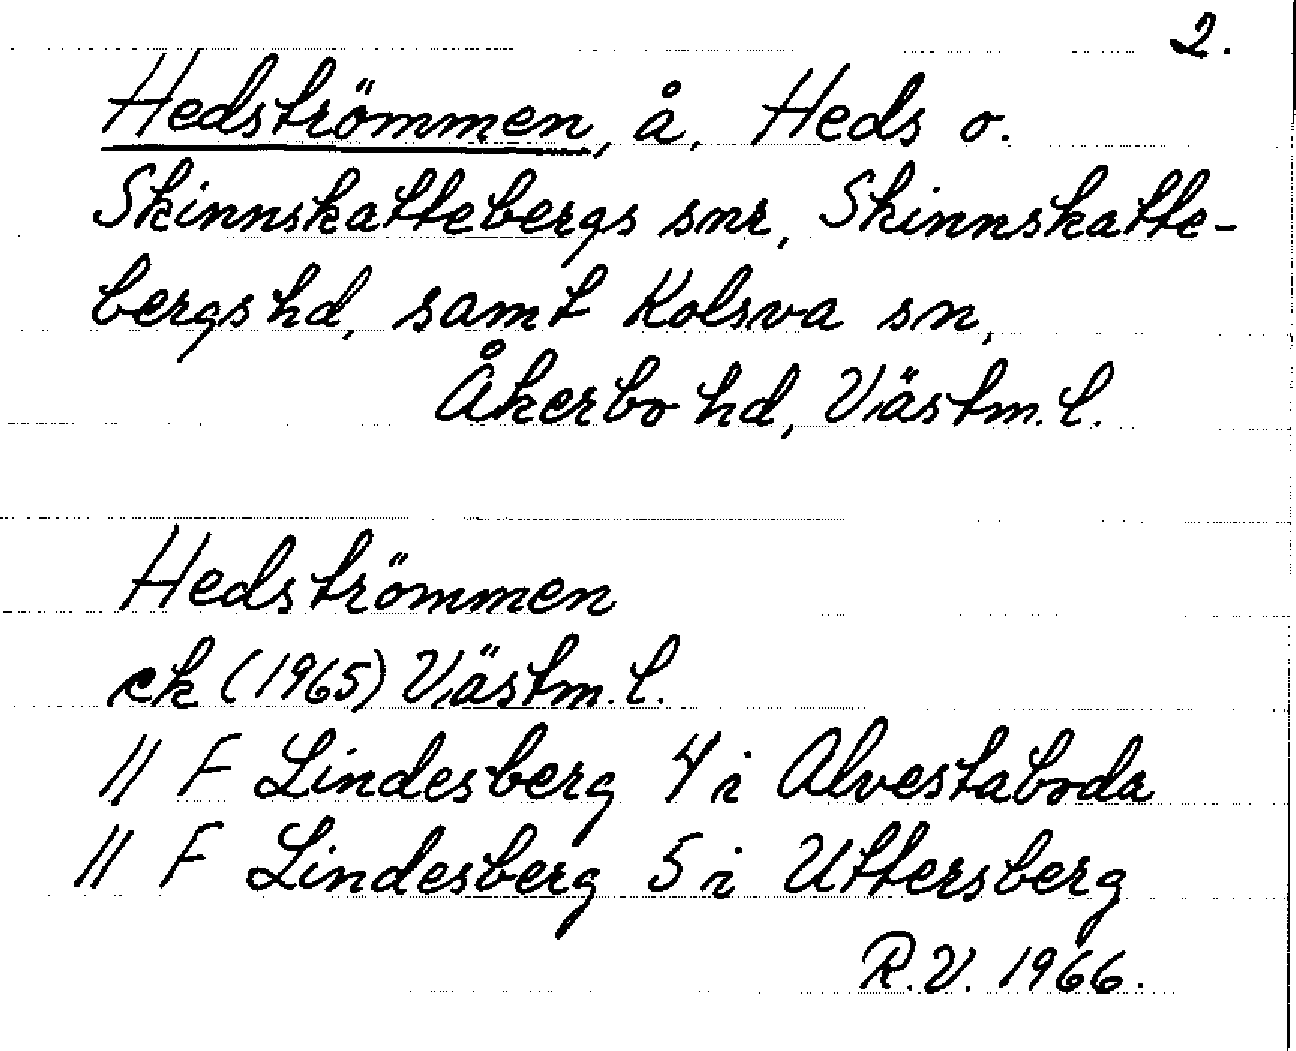 2.
Hedströmmen, å, Heds o.
Skinnskattebergs snr, Skinnskatte-
bergs hd, samt Kolsva sn,
Åkerbo hd, Västm. l.
Hedströmmen
ek (1965) Västm. l.
11 F Lindesberg 4 i Alvestaboda
11 F Lindesberg 5 i Uttersberg
R.V. 1966.